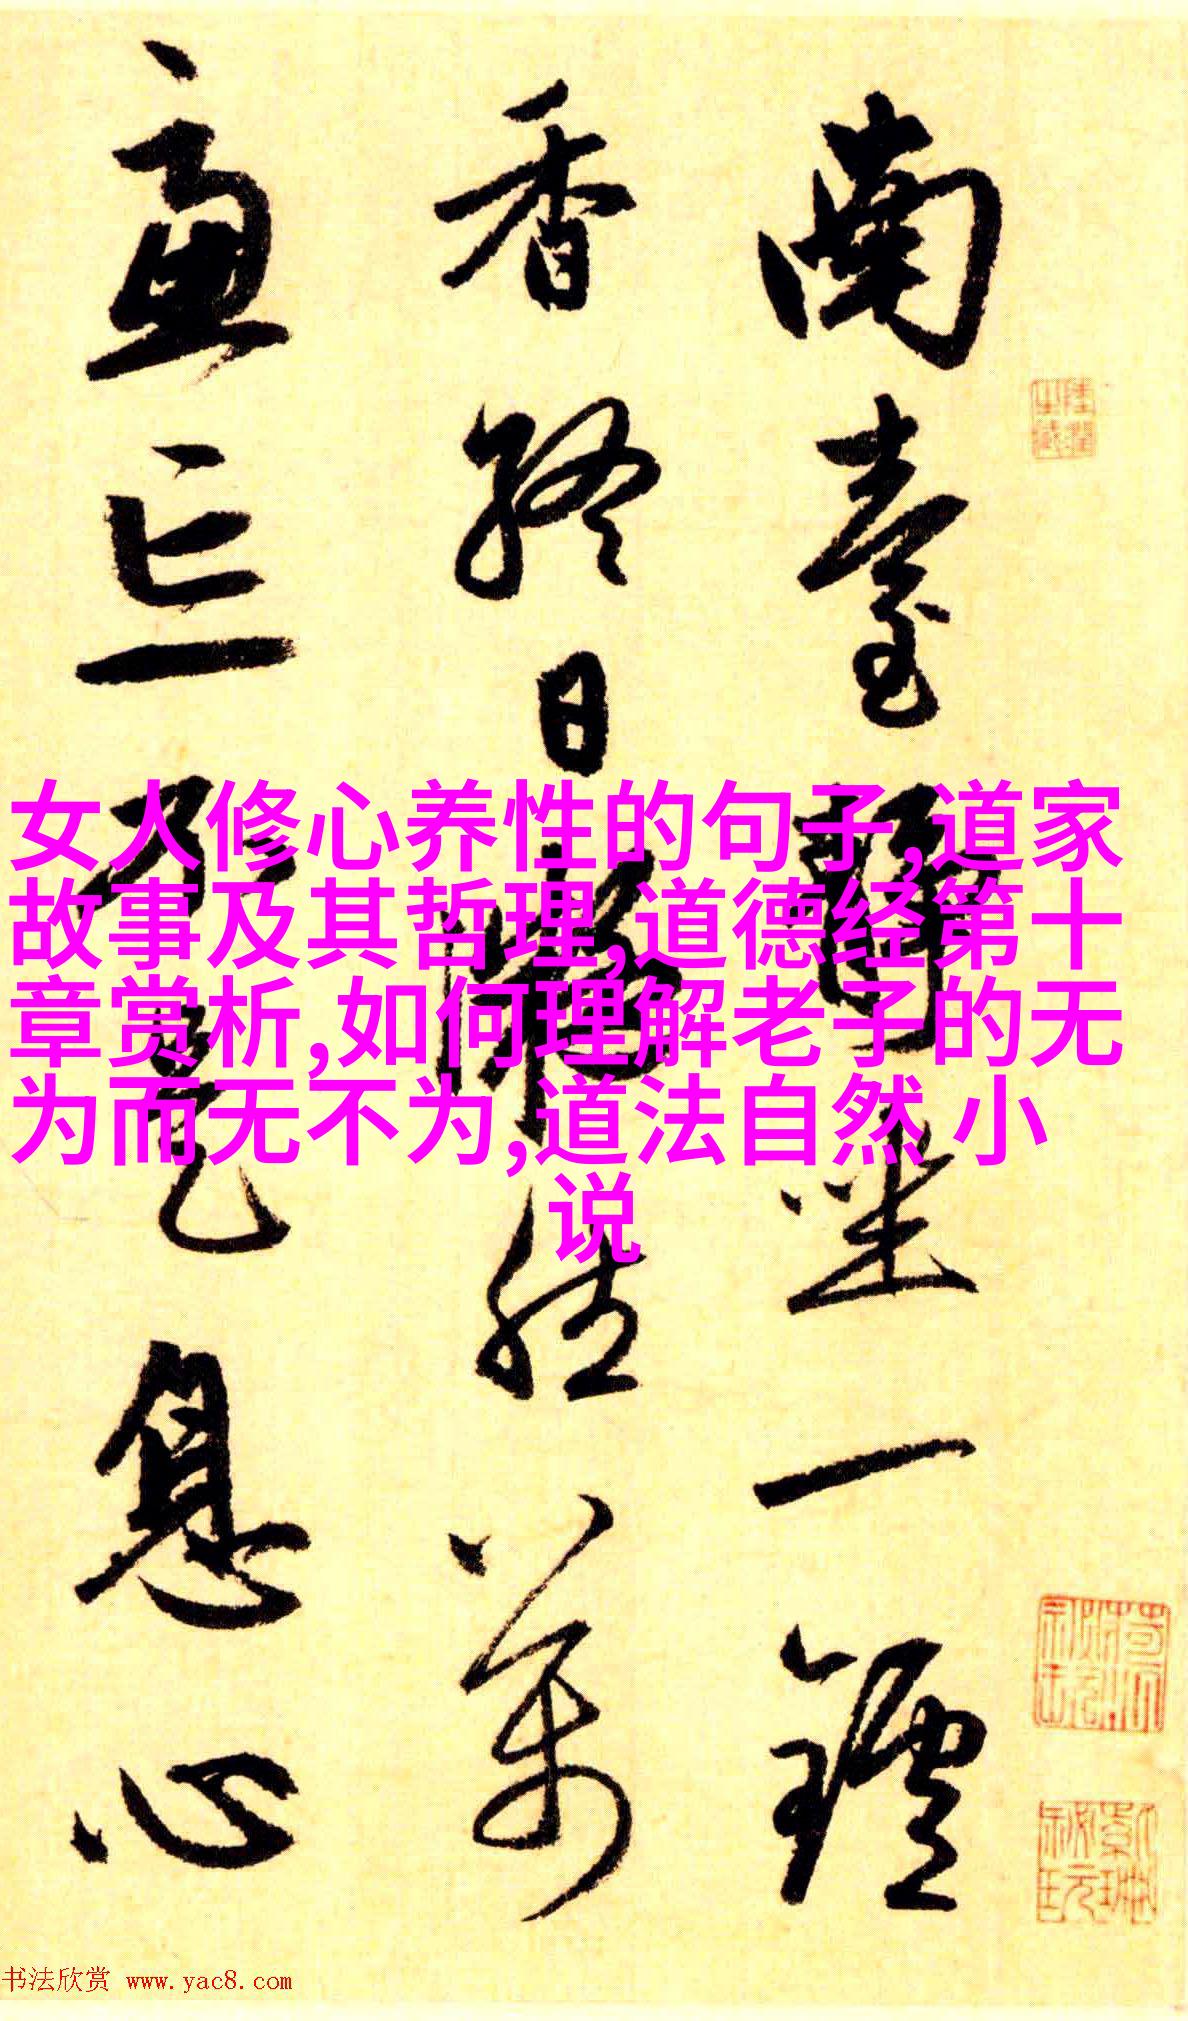 南臺靜坐一鑪
香終日凝然萬
慮忘不是息心
女人修心养性的句子,道家
故事及其哲理,道德经第十
章赏析,如何理解老子的无
为而无不为,道法自然 小
说
书法欣赏 www.yac8.com